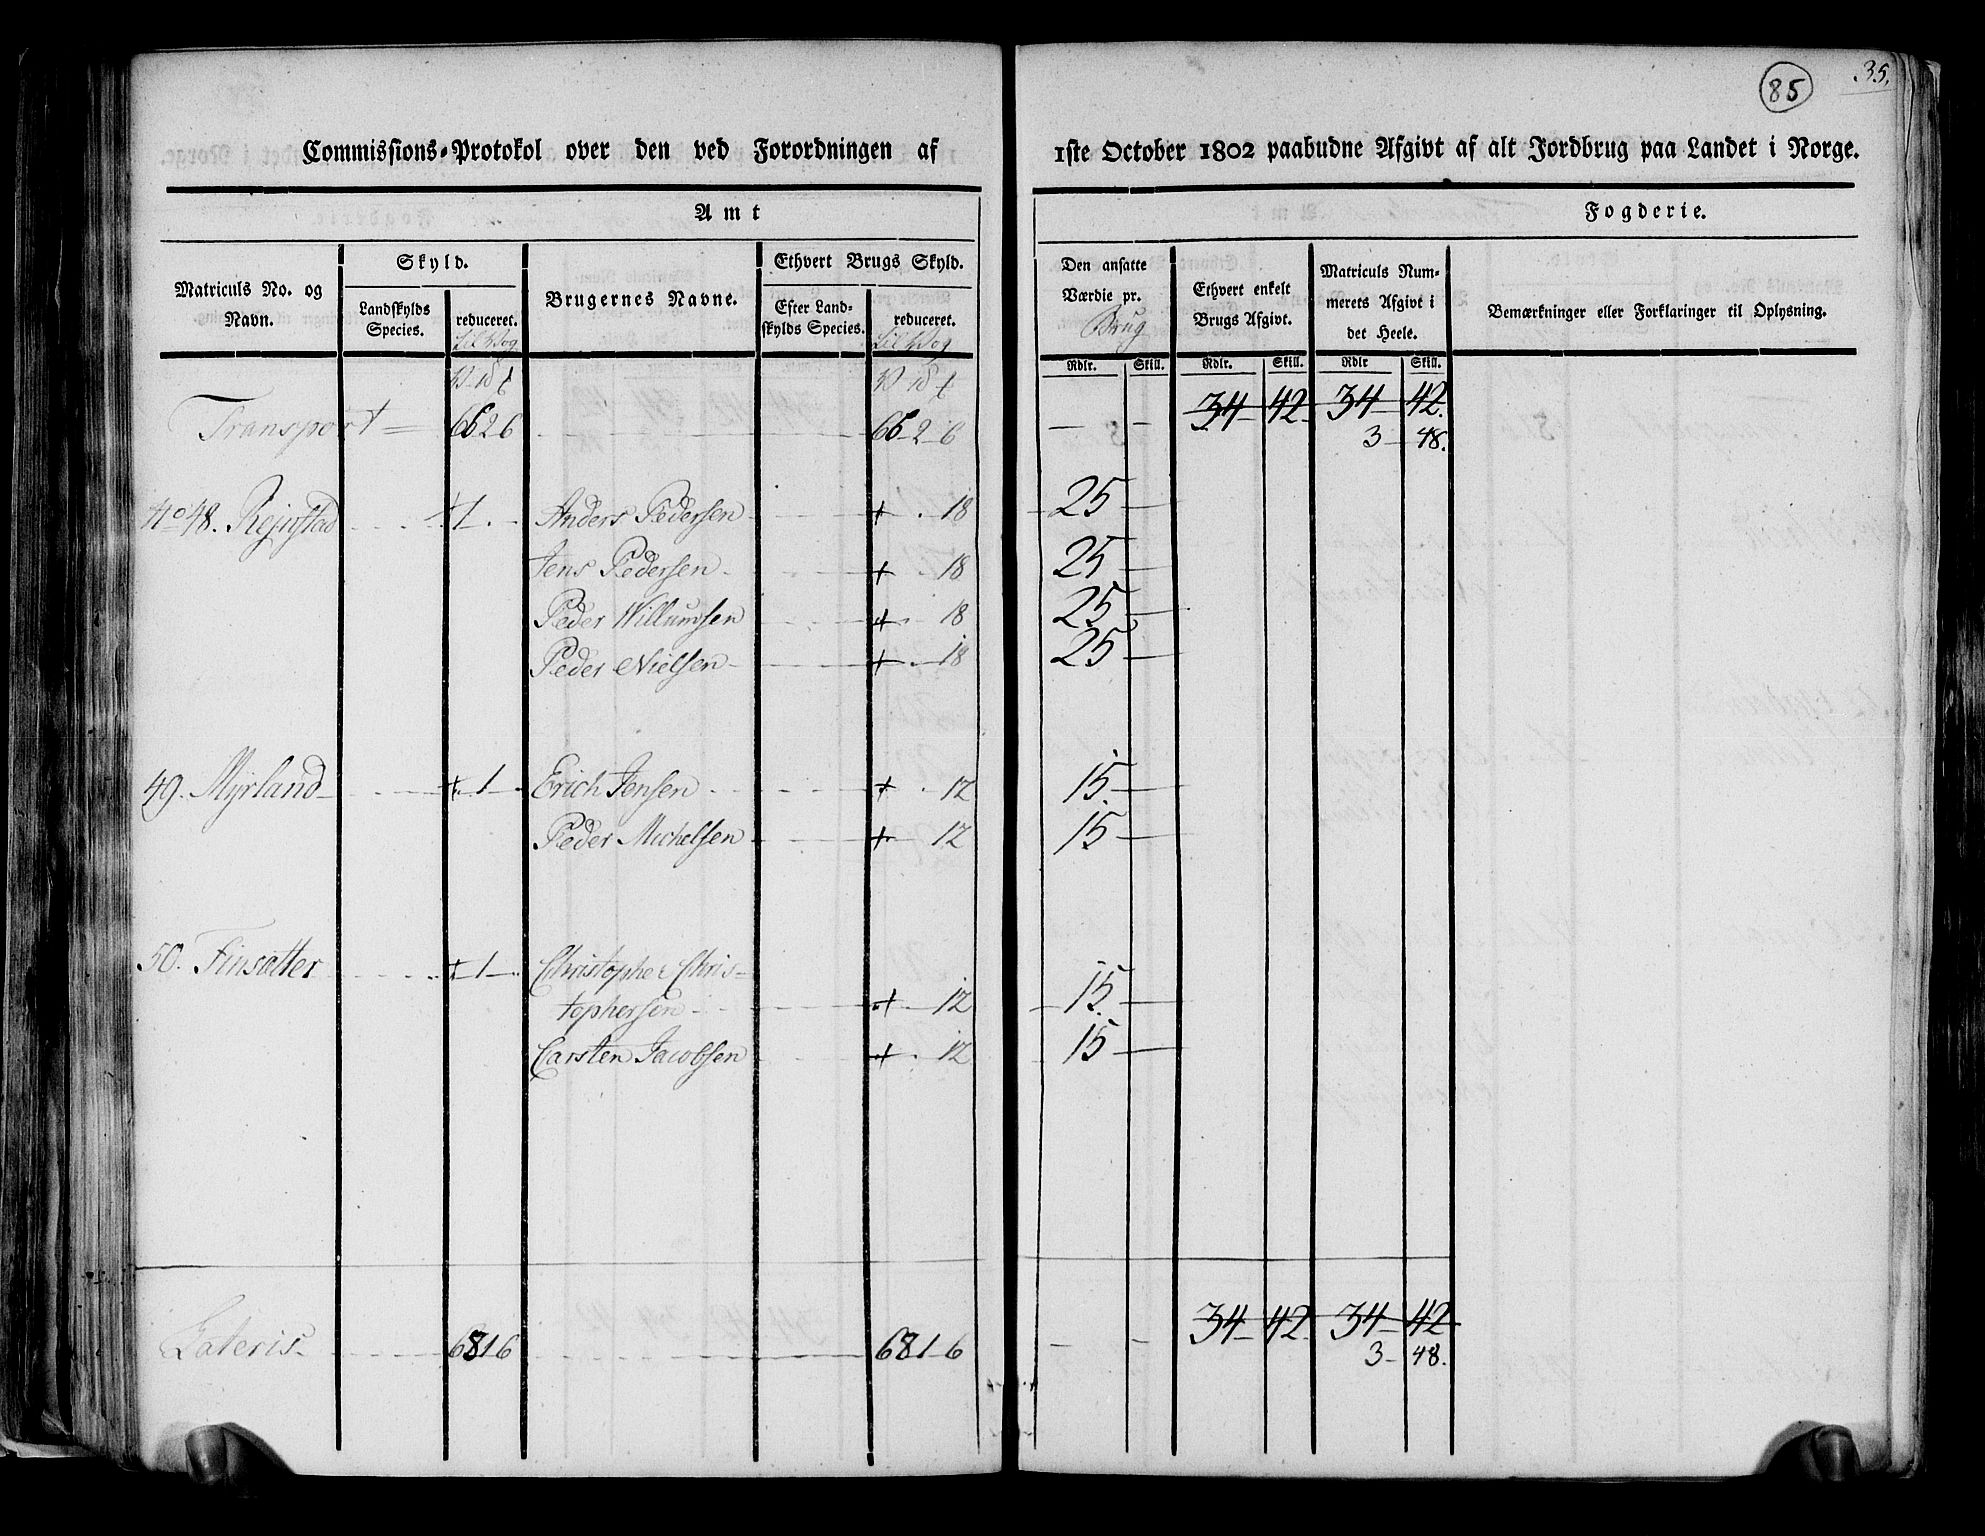 85
35.
Commissions-Protokol over den ved Forordningen af 1ste October 1802 paabudne Afgivt af alt Jordbrug paa Landet i Norge.
Amt Fogderie.
Matriculs No. og Navn.
Skyld.
Landskylds Species.
reduceret.
Brugernes Navne.
Ethvert Brugs Skyld.
Efter Landskylds Species.
reduceret.
Den ansatte Værdie pr. Brug
Ethvert enkelt Brugs Afgivt.
Matriculs Nummerets Afgivt i det Heele.
Bemærkninger eller Forklaringer til Oplysning.
Rdlr. Skill. Rdlr. Skill. Rdlr Skill.
34 42 34 42.
Transport 66 2 6 66 2 6 3 48.
No 48. Rejnstad 1 Anders Pedersen 18 25
Jens Pedersen 18 25
Peder Willumsen 18 25
Peder Nielsen 18 25
49. Myrland 1 Erich Jensen 12 15
Peder Michelsen 12 15
50. Finsætter 1 Christopher Chris-
tophersen 12 15
Carsten Jacobsen 12 15
34 42 34 42
Lateris 68 1 6 68 1 6 3 48.